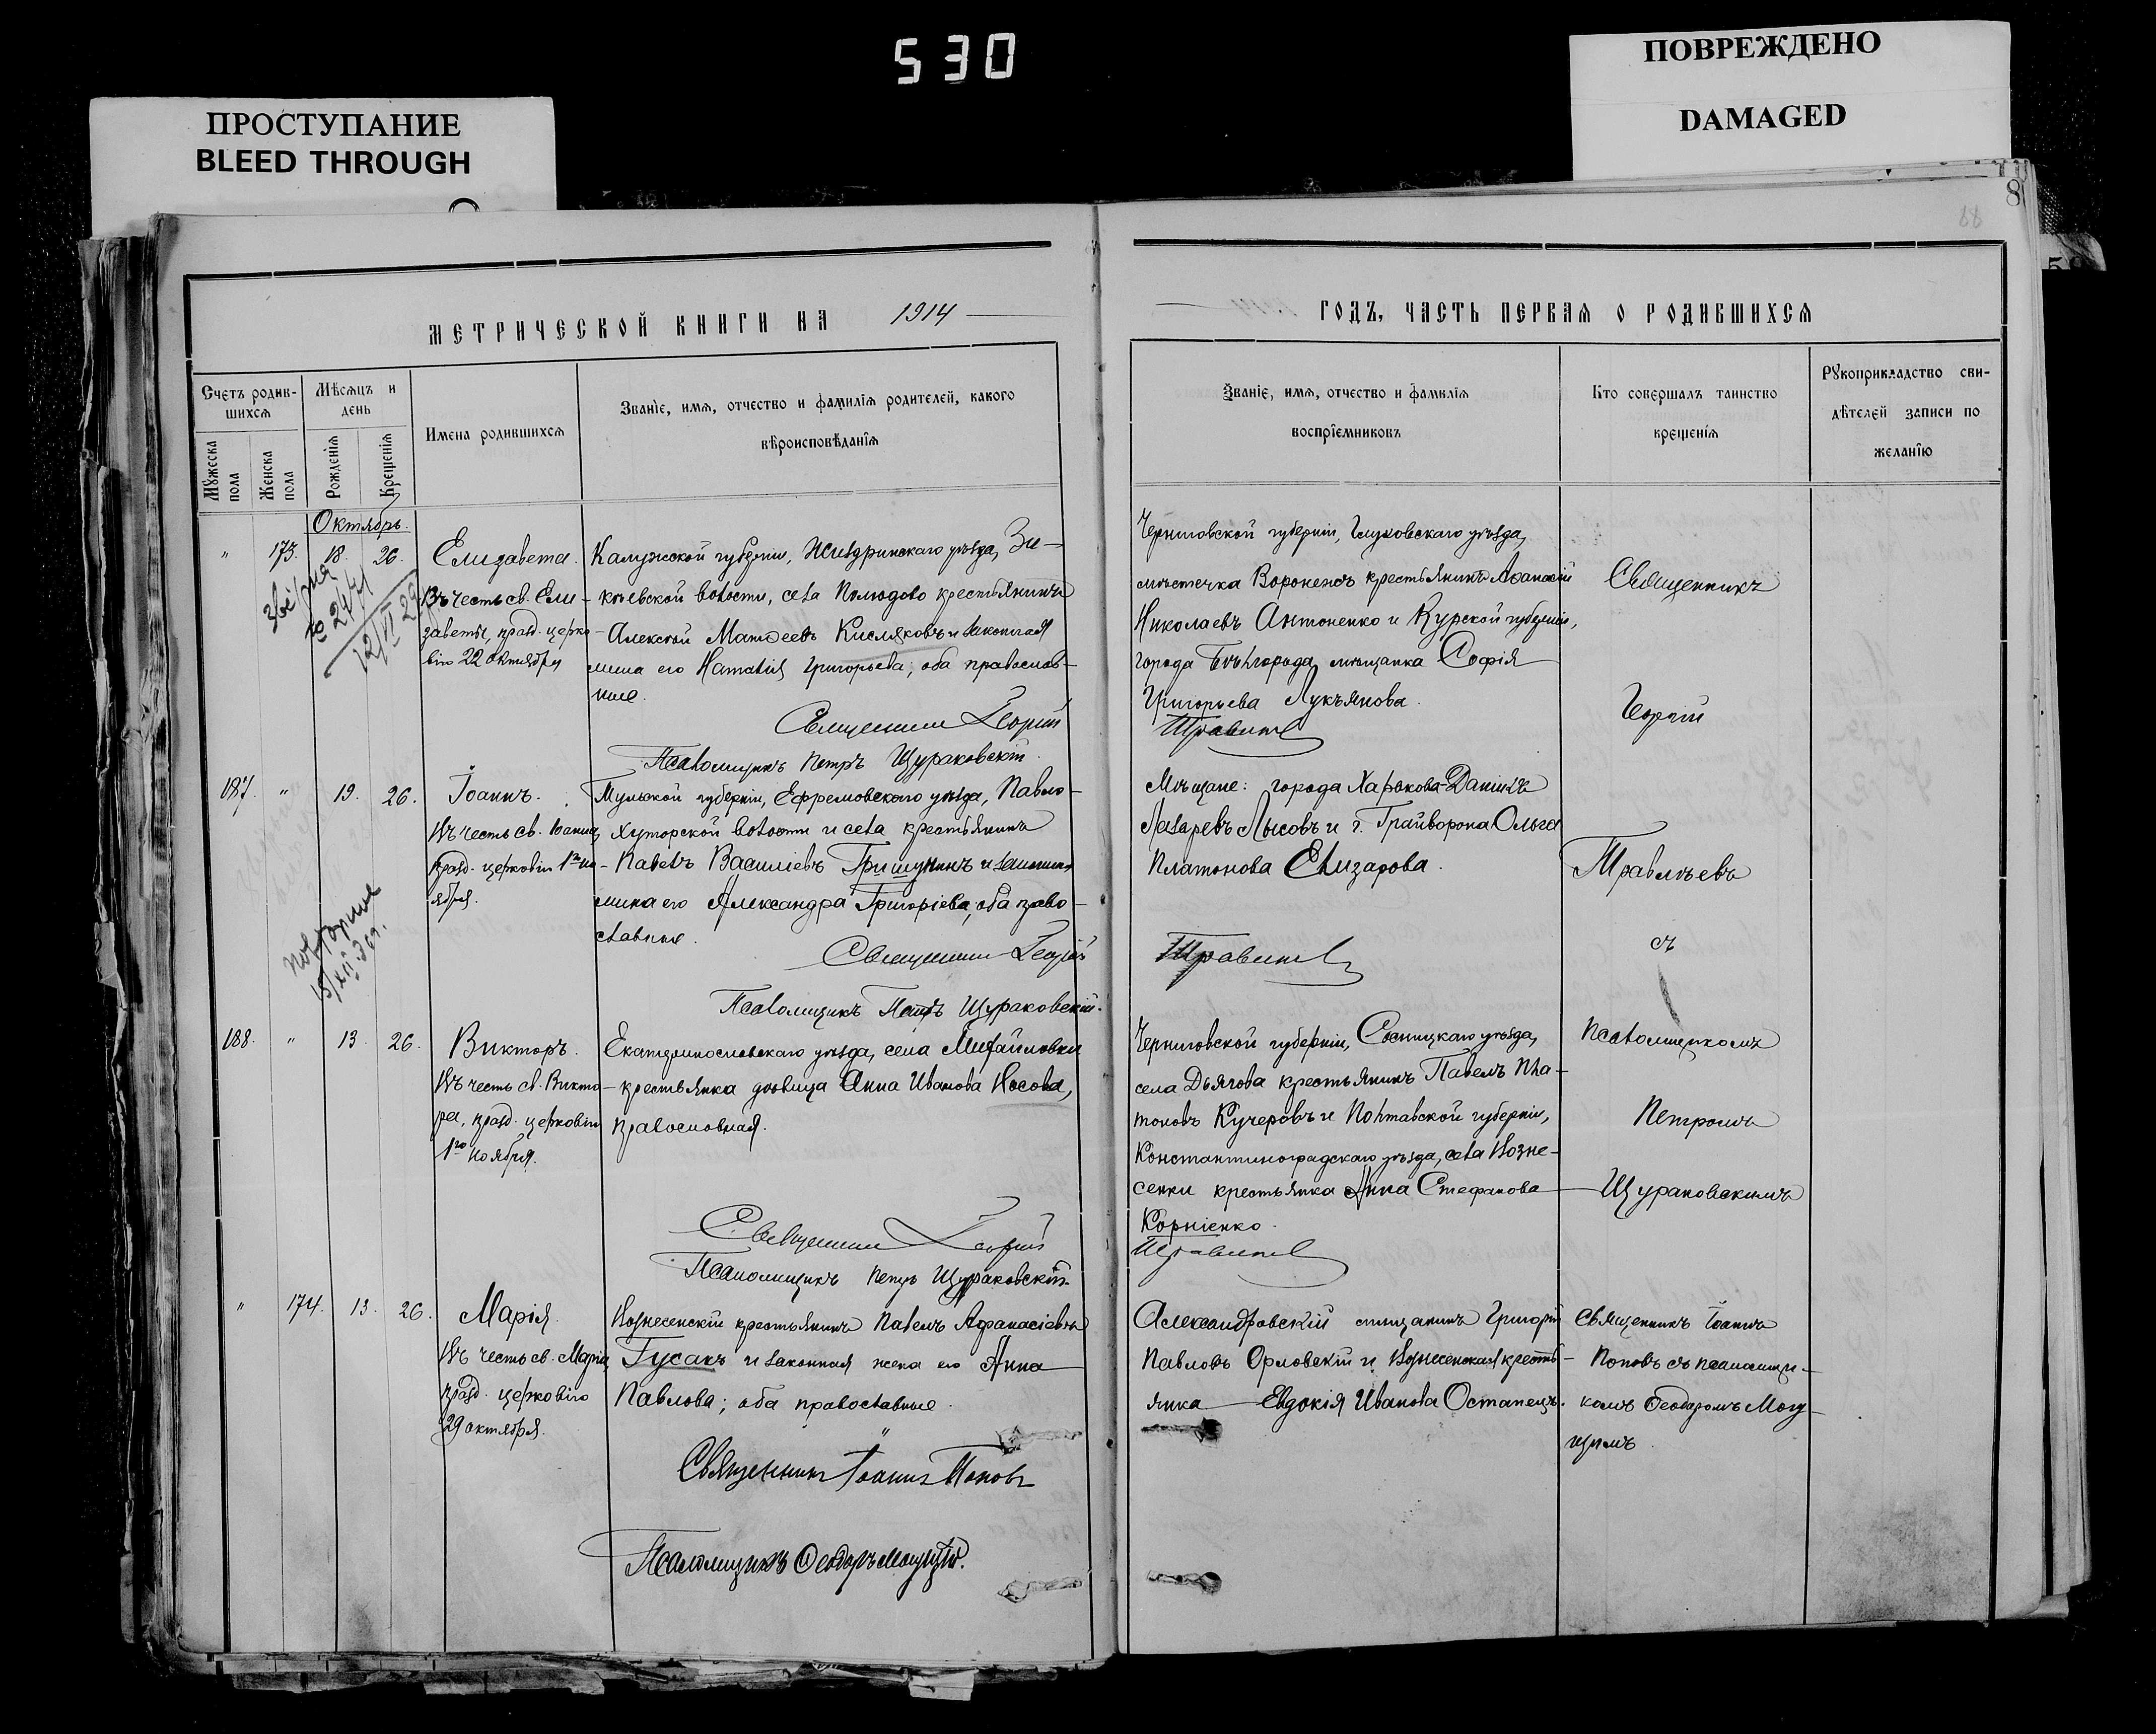 530
ПРОСТУПАНИЕ
BLEED THROUGH
ПОВРЕЖДЕНО
DAMAGED
8
88
МЕТРИЧЕСКОЙ КНИГИ НА 1914
ГОДЪ, ЧАСТЬ ПЕРВАЯ О РОДИВШИХСЯ
Счетъ родив-
шихся
Мѣсяцъ и
день
Мужеска
пола
Женска
пола
Рожденія
Крещенія
Имена родившихся
Званіе, имя, отчество и фамилія родителей, какого
вѣроисповѣданія
Званіе, имя, отчество и фамилія
воспріемниковъ
Кто совершалъ таинство
крещенія
Рукоприкладство сви-
дѣтелей записи по
желанію
Октябрь.
" 173. 18. 26.
№ 2471
Елизавета.
Въ честь св. Ели-
заветы, празд. церко-
вію 22 октября
Калужской губерніи, Жиздринскаго уѣзда, Зи-
кѣевской волости, села Полюдово крестьянинъ
Алексѣй Матѳеевъ Кисляковъ и законная
жена его Наталія Григорьева; оба православ-
ные.
Священникъ Георгій
Псаломщикъ Петръ Щураковскій.
Черниговской губерніи, Глуховскаго уѣзда,
мѣстечка Воронежъ крестьянинъ Аѳанасій
Николаевъ Антоненко и Курской губерніи,
города Бѣлгорода мѣщанка Софія
Григорьева Лукъянова.
Священникъ
Георгій
187. " 19. 26.
Іоаннъ.
Въ честь св. Іоанна,
празд. церковію 1го но-
ября.
Тульской губерніи, Ефремовскаго уѣзда, Павло-
Хуторской волости и села крестьянинъ
Павелъ Василіевъ Гришунинъ и законная
жена его Александра Григоріева, оба право-
славные.
Священникъ Георгій
Псаломщикъ Петръ Щураковскій.
Мѣщане: города Харькова Даніилъ
Лазаревъ Лысовъ и г. Грайворона Ольга
Платонова Елизарова.
Травлѣевъ
съ
повторное
188. " 13. 26.
Викторъ.
Въ честь св. Викто-
ра, празд. церковію
1го ноября.
Екатеринославскаго уѣзда, села Михайловки
крестьянка дѣвица Анна Иванова Носова,
православная.
Священникъ Георгій
Псаломщикъ Петръ Щураковскій.
Черниговской губерніи, Сосницкаго уѣзда,
села Дьягова крестьянинъ Павелъ Пла-
тоновъ Кучеровъ и Полтавской губерніи,
Константиноградскаго уѣзда, села Возне-
сенки крестьянка Анна Стефанова
Корніенко.
Псаломщикомъ
Петромъ
Щураковскимъ
" 174. 13. 26.
Марія.
Въ честь св. Маріи,
празд. церковію
29 октября.
Вознесенскій крестьянинъ Павелъ Аѳанасіевъ
Гусакъ и законная жена его Анна
Павлова; оба православные.
Священникъ Іоаннъ Поповъ
Псаломщикъ Ѳеодоръ
Александровскій мѣщанинъ Григорій
Павловъ Орловскій и Вознесенская кресть-
янка Евдокія Иванова Остапецъ.
Священникъ Іоаннъ
Поповъ съ псаломщи-
комъ Ѳеодоромъ